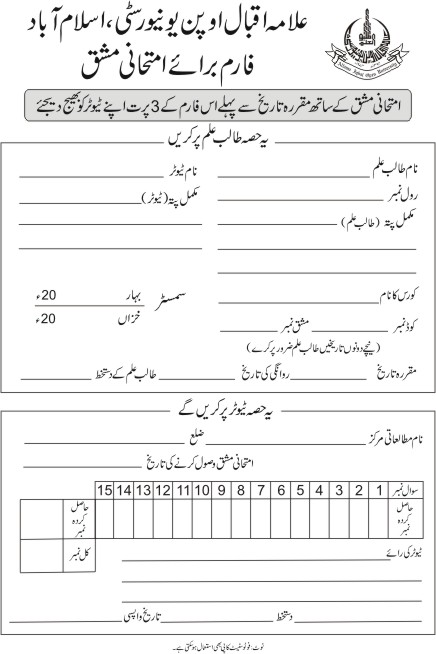 علامہ اقبال اوپن یونیورسٹی، اسلام آباد
فارم برائے امتحانی مشق
Allama Iqbal Open University
امتحانی مشق کے ساتھ مقررہ تاریخ سے پہلے اس فارم کے 3 پرت اپنے ٹیوٹر کو بھیج دیجئے
یہ حصہ طالب علم پر کریں
نام طالب علم ـ نام ٹیوٹر
رول نمبر ـ مکمل پتہ (ٹیوٹر)
مکمل پتہ (طالب علم)
کورس کا نام ـ سمسٹر بہار 20ء
خزاں 20ء
کوڈ نمبر ـ مشق نمبر
(نیچے دونوں تاریخیں طالب علم ضرور پر کرے)
مقررہ تاریخ ـ روانگی کی تاریخ ـ طالب علم کے دستخط
یہ حصہ ٹیوٹر پر کریں گے
نام مطالعاتی مرکز ـ ضلع
امتحانی مشق وصول کرنے کی تاریخ
سوال نمبر 1 2 3 4 5 6 7 8 9 10 11 12 13 14 15
حاصل کردہ نمبر ـ حاصل کردہ نمبر
کل نمبر
ٹیوٹر کی رائے
دستخط ـ تاریخ واپسی
نوٹ: فوٹوسٹیٹ کاپی بھی استعمال ہو سکتی ہے۔